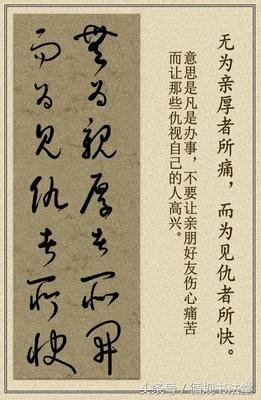 无为亲厚者所痛，而为见仇者所快。
意思是凡是办事，不要让亲朋好友伤心痛苦
而让那些仇视自己的人高兴。
無为親厚者所痛
而为見仇者所快
头条号 / 循规书法堂